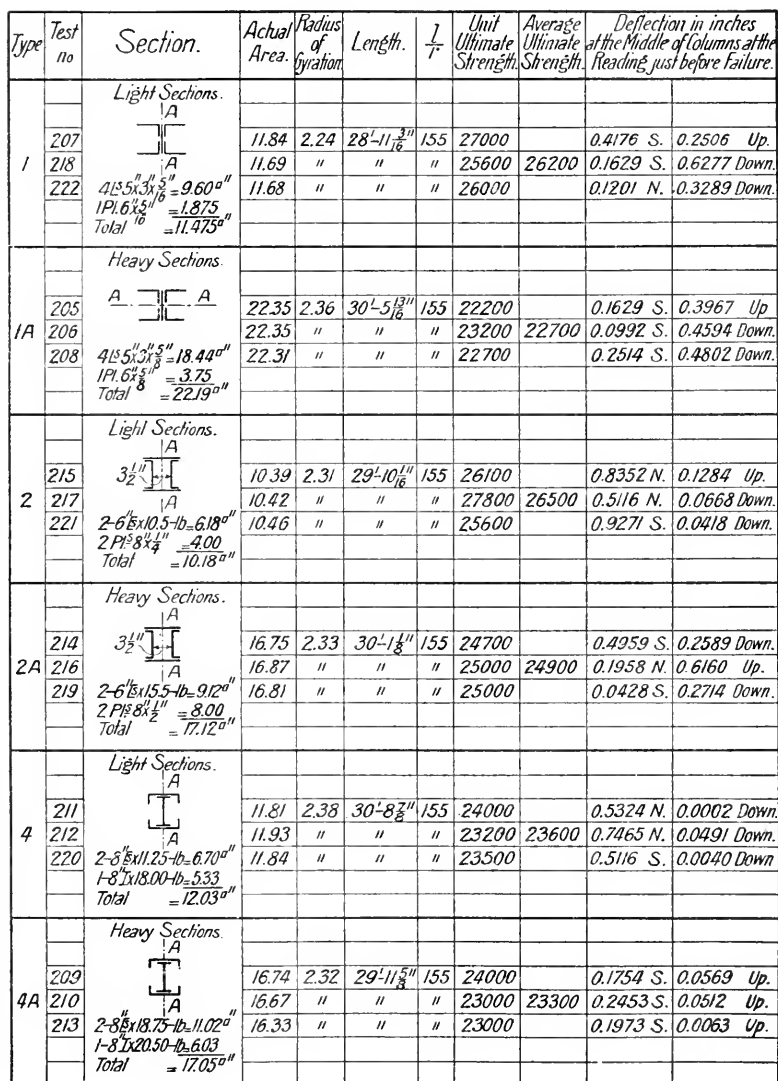 Type | Test no | Section. | Actual Area. | Radius of Gyration | Length. | l/r | Unit Ultimate Strength. | Average Ultimate Strength. | Deflection in inches at the Middle of Columns at the Reading just before Failure.
Light Sections.
A
207 | 11.84 | 2.24 | 28'-11 3/16" | 155 | 27000 | 0.4176 S. | 0.2506 Up.
1 | 218 | A | 11.69 | " | " | " | 25600 | 26200 | 0.1629 S. | 0.6277 Down.
222 | 4Ls 5"x3"x5/16" = 9.60□" | 11.68 | " | " | " | 26000 | 0.1201 N. | 0.3289 Down.
1Pl. 6"x5/16" = 1.875
Total = 11.475□"
Heavy Sections.
205 | A A | 22.35 | 2.36 | 30'-5 13/16" | 155 | 22200 | 0.1629 S. | 0.3967 Up
1A | 206 | 22.35 | " | " | " | 23200 | 22700 | 0.0992 S. | 0.4594 Down.
208 | 4Ls 5"x3"x5/8" = 18.44□" | 22.31 | " | " | " | 22700 | 0.2514 S. | 0.4802 Down.
1Pl. 6"x5/8" = 3.75
Total = 22.19□"
Light Sections.
A
215 | 3 1/2" | 10.39 | 2.31 | 29'-10 1/16" | 155 | 26100 | 0.8352 N. | 0.1284 Up.
2 | 217 | A | 10.42 | " | " | " | 27800 | 26500 | 0.5116 N. | 0.0668 Down.
221 | 2-6"[s x10.5-lb = 6.18□" | 10.46 | " | " | " | 25600 | 0.9271 S. | 0.0418 Down.
2 Pls 8"x1/4" = 4.00
Total = 10.18□"
Heavy Sections.
A
214 | 3 1/2" | 16.75 | 2.33 | 30'-1 1/8" | 155 | 24700 | 0.4959 S. | 0.2589 Down.
2A | 216 | A | 16.87 | " | " | " | 25000 | 24900 | 0.1958 N. | 0.6160 Up.
219 | 2-6"[s x15.5-lb = 9.12□" | 16.81 | " | " | " | 25000 | 0.0428 S. | 0.2714 Down.
2 Pls 8"x1/2" = 8.00
Total = 17.12□"
Light Sections.
A
211 | 11.81 | 2.38 | 30'-8 7/8" | 155 | 24000 | 0.5324 N. | 0.0002 Down.
4 | 212 | A | 11.93 | " | " | " | 23200 | 23600 | 0.7465 N. | 0.0491 Down.
220 | 2-8"[s x11.25-lb = 6.70□" | 11.84 | " | " | " | 23500 | 0.5116 S. | 0.0040 Down
1-8"Ix18.00-lb = 5.33
Total = 12.03□"
Heavy Sections.
A
209 | 16.74 | 2.32 | 29'-11 5/8" | 155 | 24000 | 0.1754 S. | 0.0569 Up.
4A | 210 | A | 16.67 | " | " | " | 23000 | 23300 | 0.2453 S. | 0.0512 Up.
213 | 2-8"[s x18.75-lb = 11.02□" | 16.33 | " | " | " | 23000 | 0.1973 S. | 0.0063 Up.
1-8"Ix20.50-lb = 6.03
Total = 17.05□"